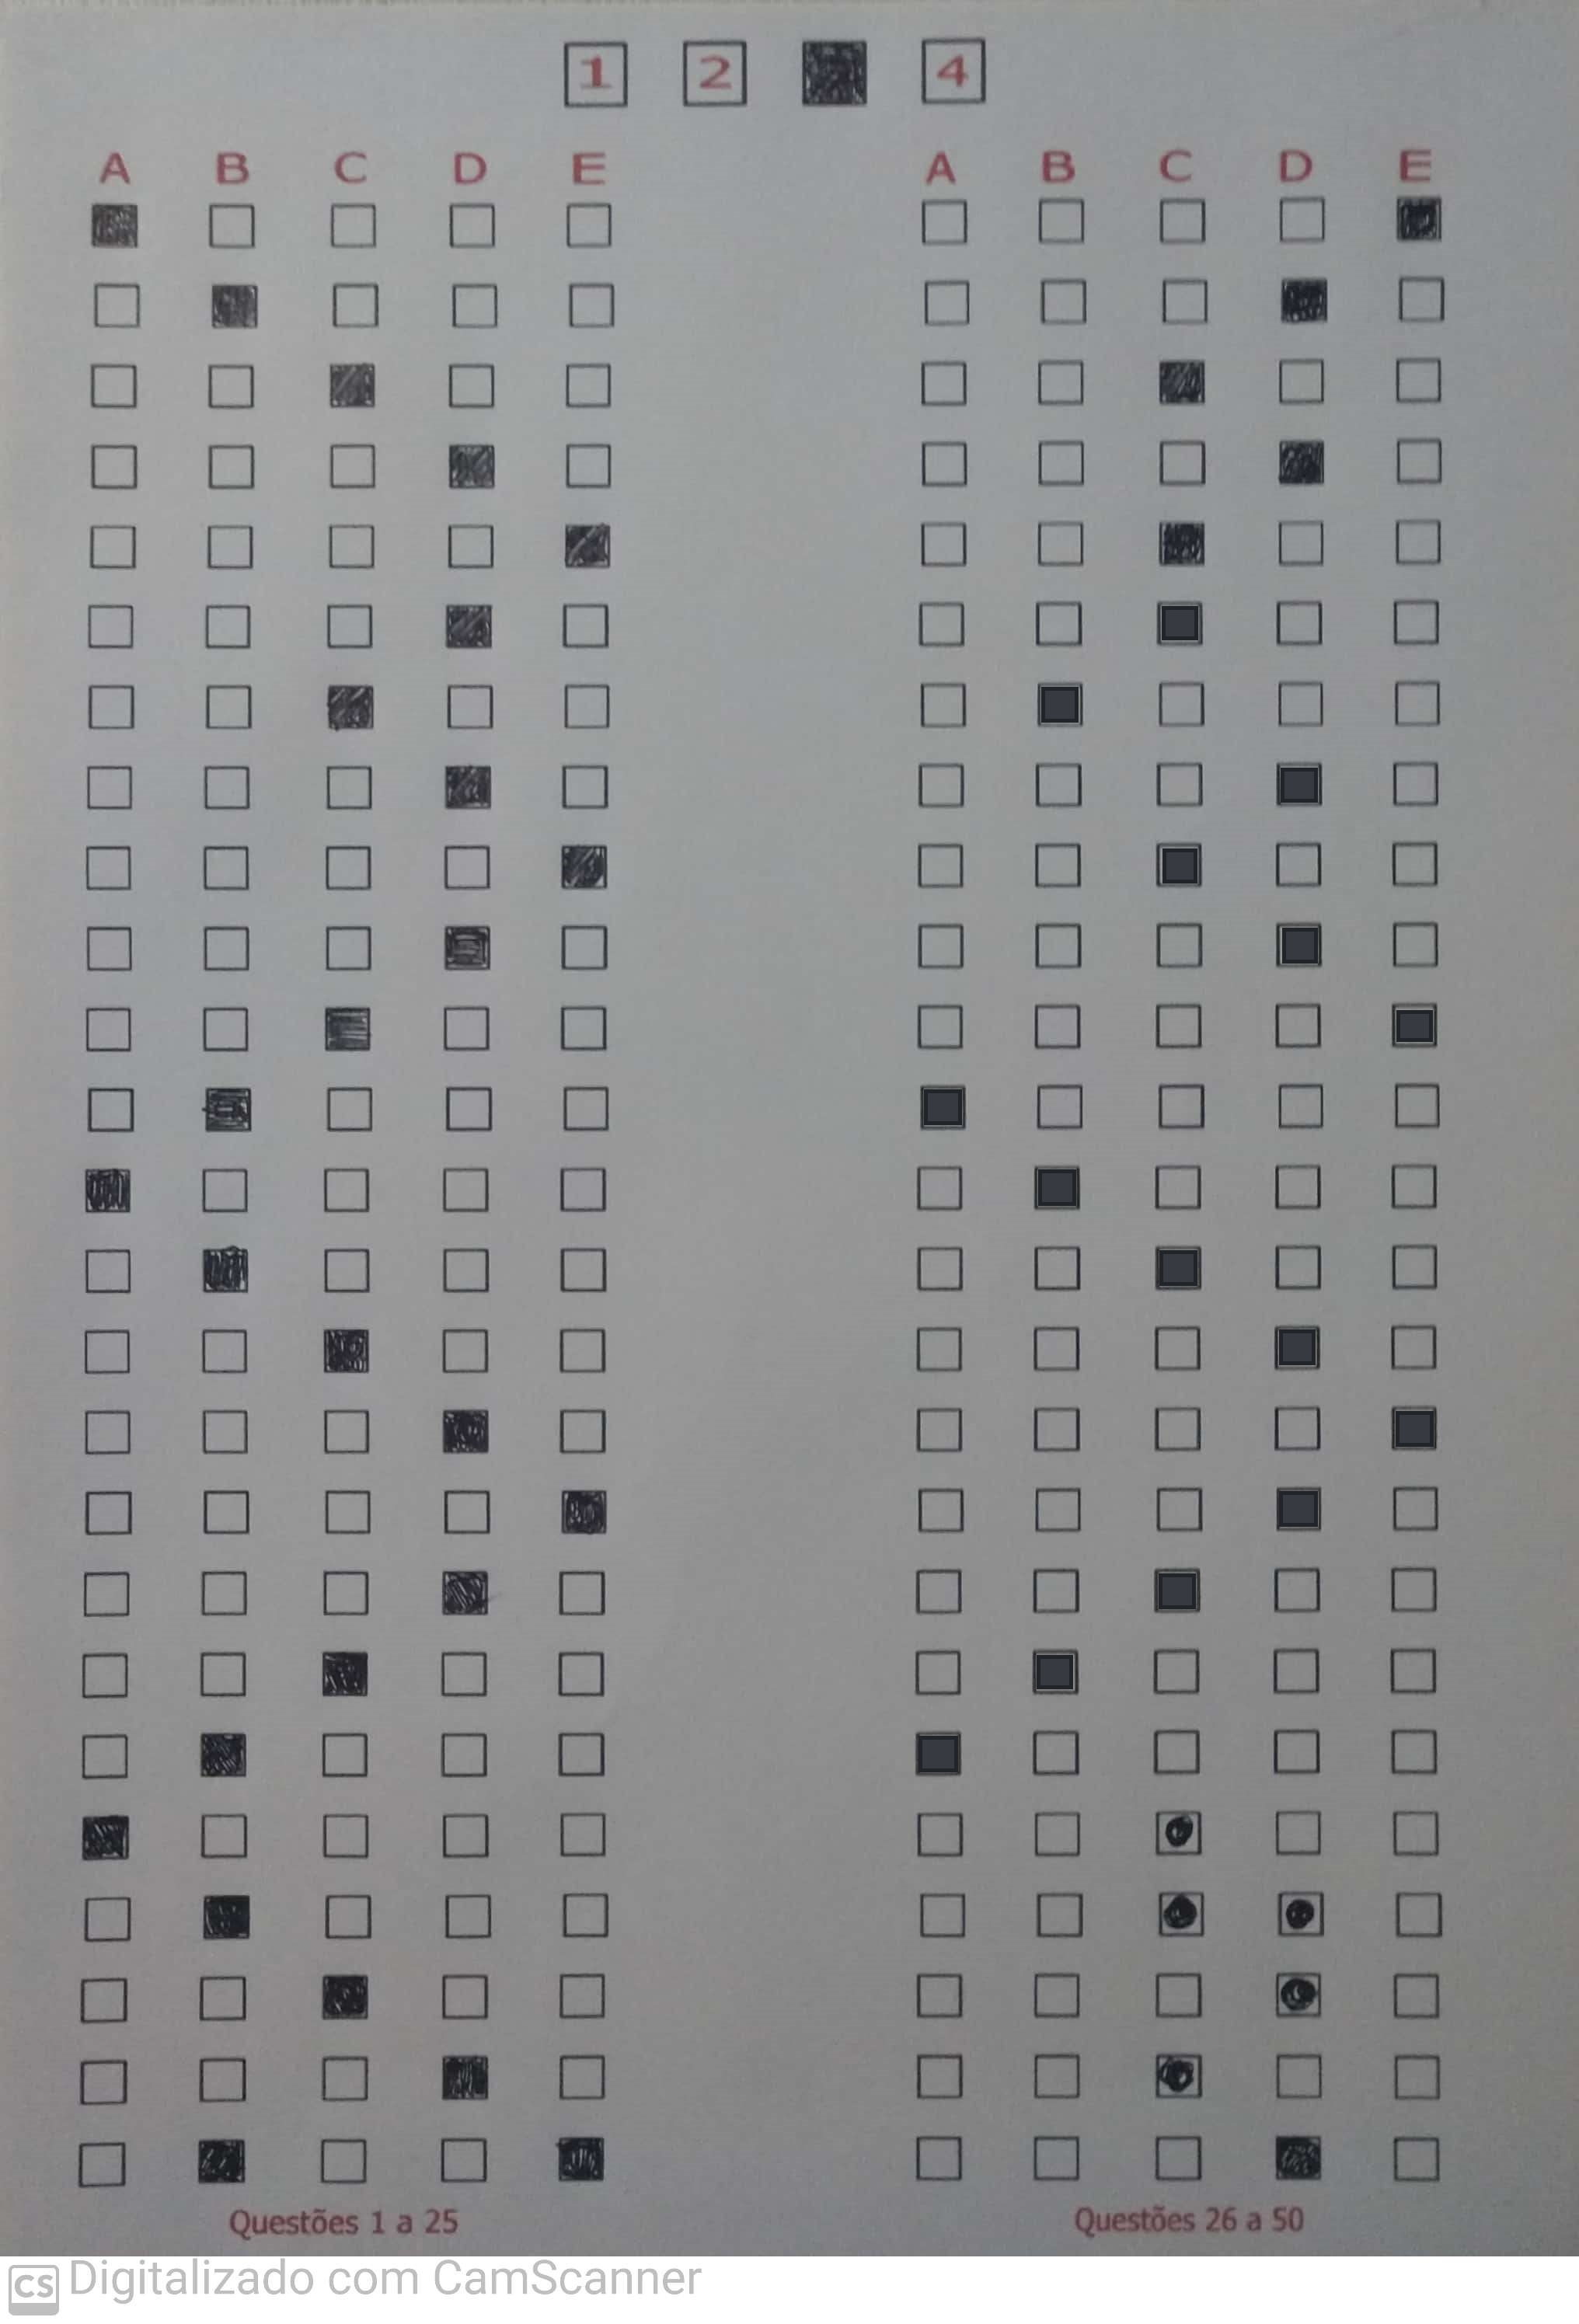 1 2 4
A B C D E A B C D E
Questões 1 a 25 Questões 26 a 50
CS Digitalizado com CamScanner